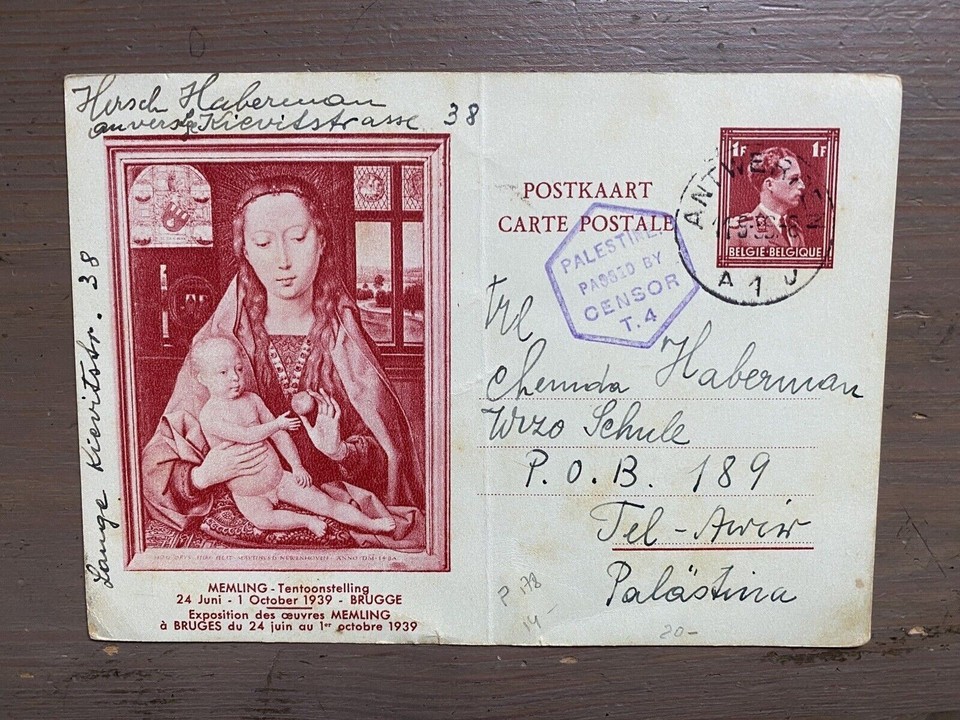 Hirsch Haberman
anvers Lge Kievitstrasse 38
Lange Kievitstr. 38
POSTKAART
CARTE POSTALE
1F 1F
BELGIE·BELGIQUE
ANTWER
A 1 J
PALESTINE
PASSED BY
CENSOR
T.4
Chemda Haberman
Wizo Schule
P.O.B. 189
Tel-Awiw
Palästina
MEMLING - Tentoonstelling
24 Juni - 1 October 1939 - BRUGGE
Exposition des œuvres MEMLING
à BRUGES du 24 juin au 1er octobre 1939
P 178
14-
20-